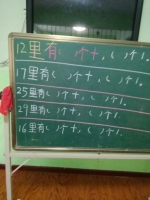 12里有( )个十,( )个1。
17里有( )个十,( )个1。
25里有( )个十,( )个1。
29里有( )个十,( )个1。
16里有( )个十,( )个1。